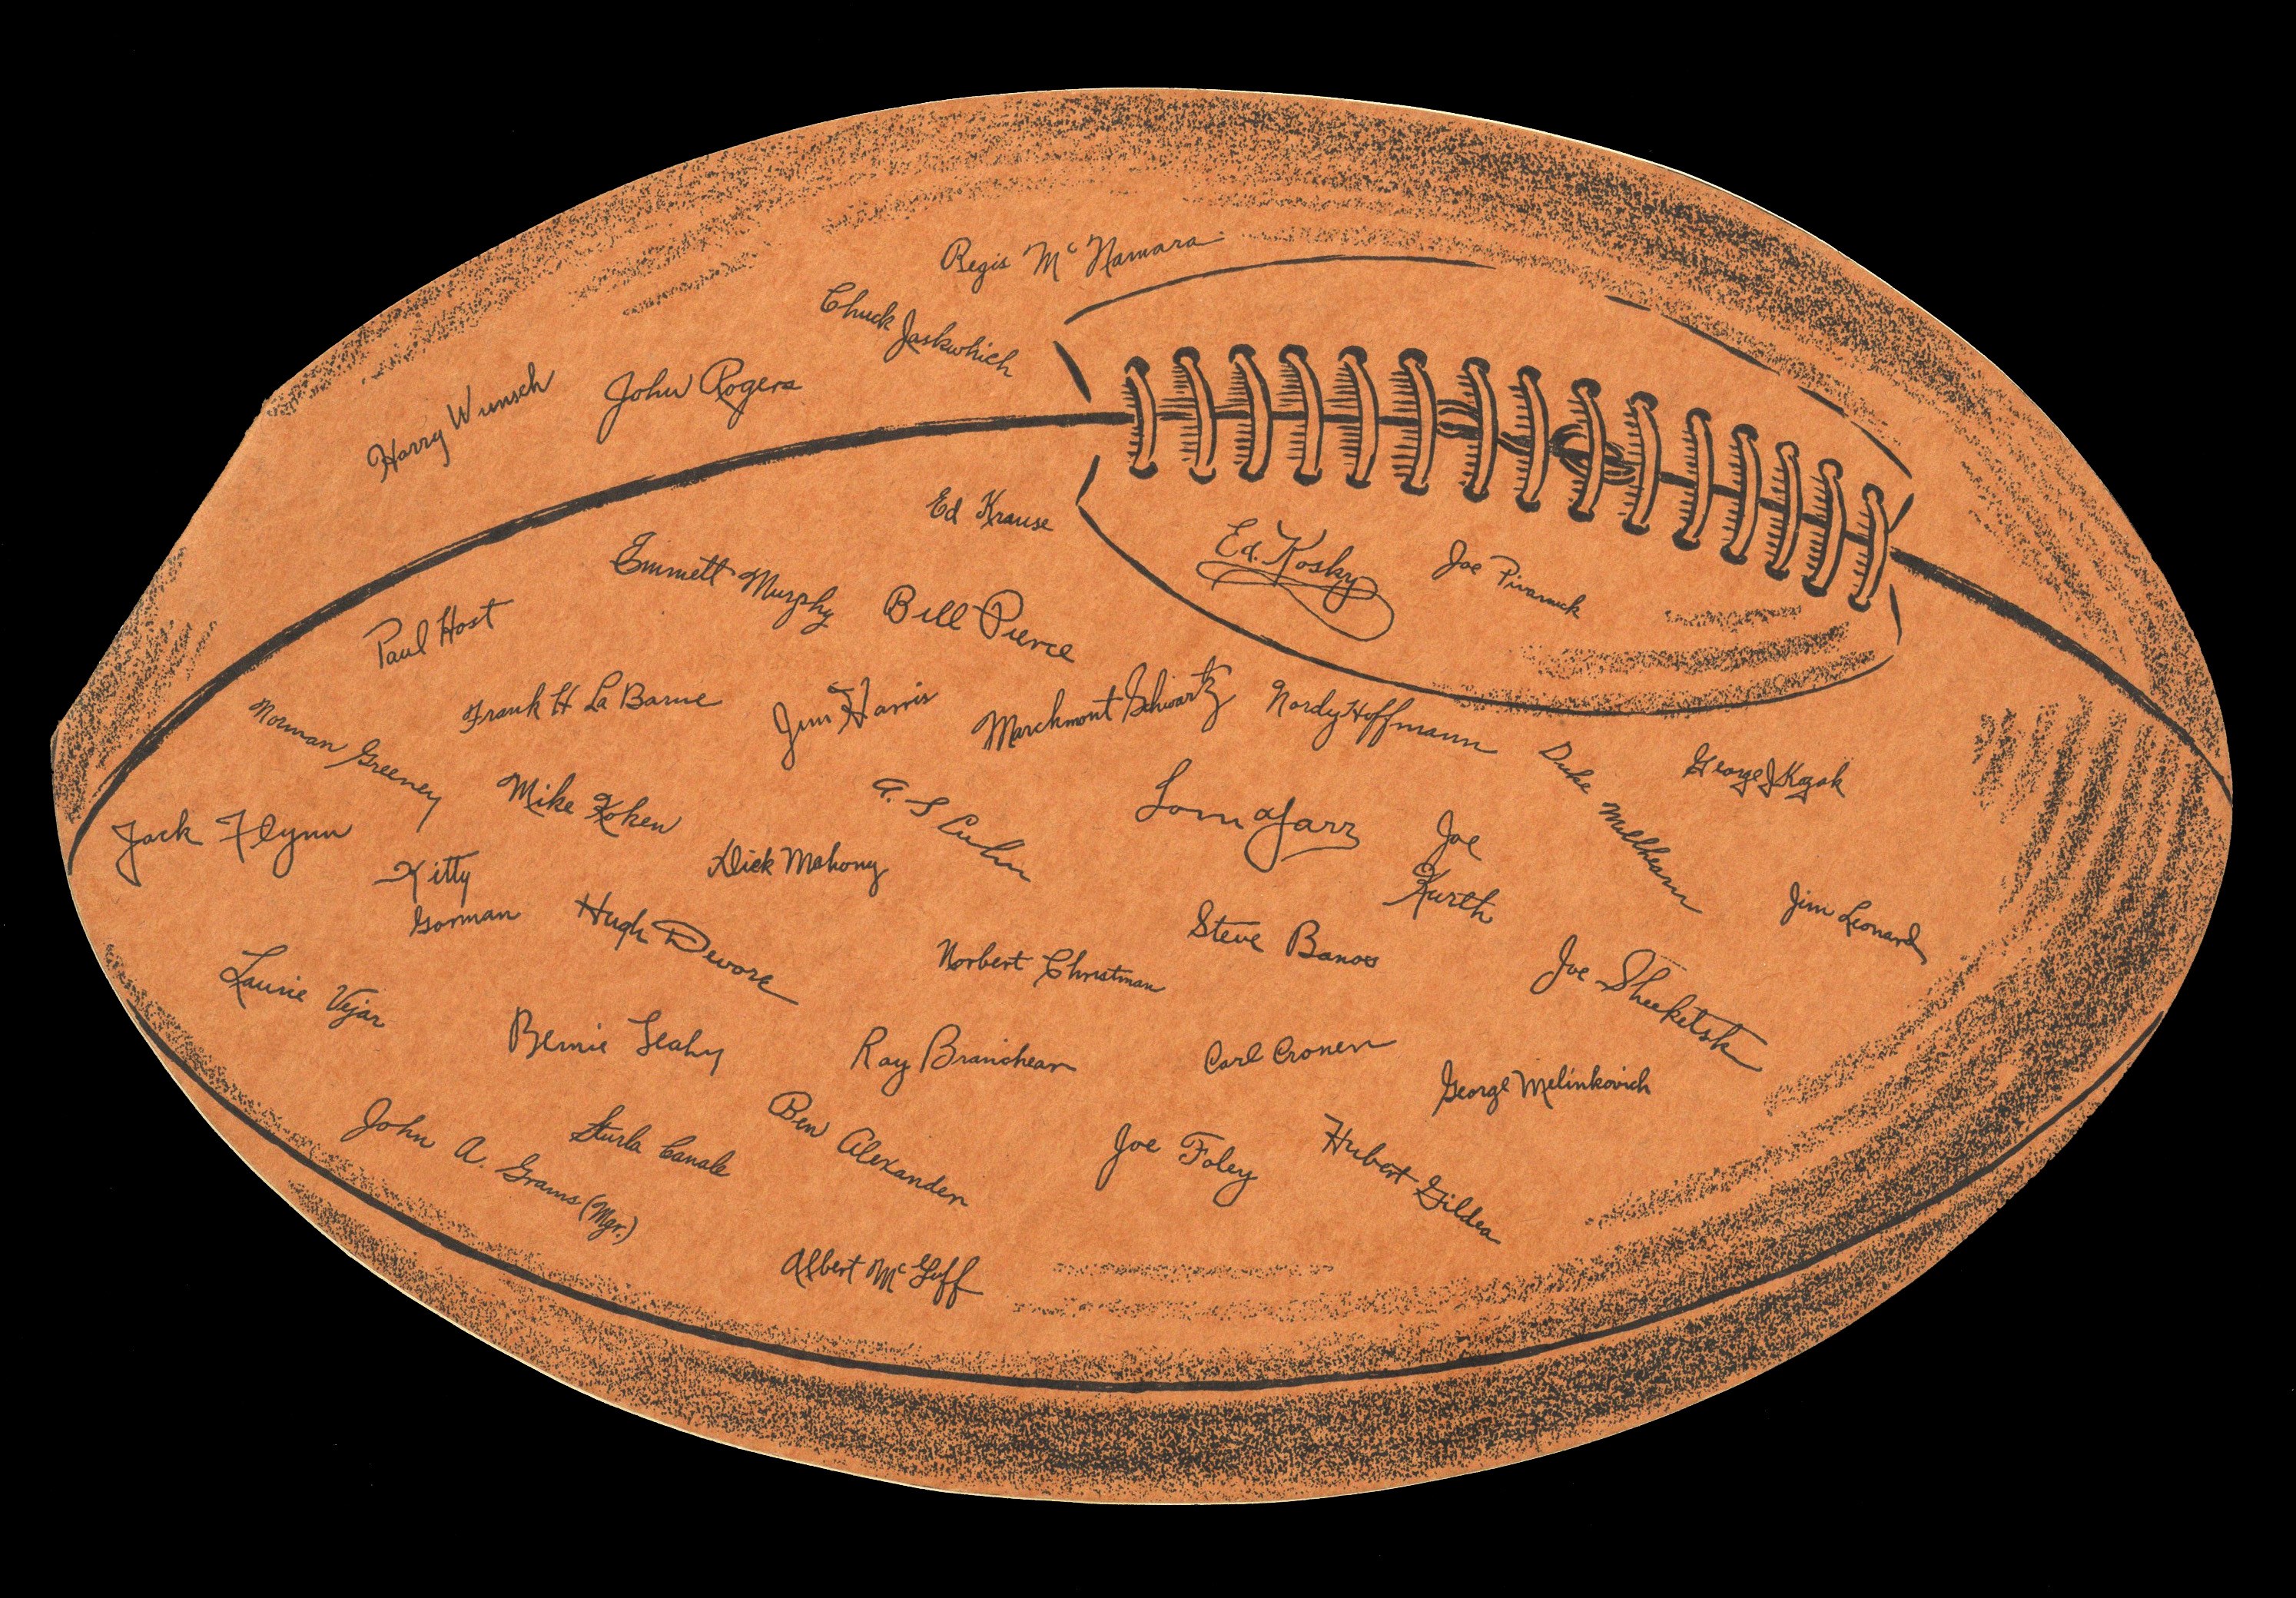 Regis McNamara
Chuck Jaskwhich
Harry Wunsch
John Rogers
Ed Krause
Ed. Kosky
Joe Pivarnuk
Emmett Murphy
Bill Pierce
Paul Host
Frank H La Barne
Jim Harris
Marchmont Schwartz
Nordy Hoffmann
Duke Millheam
George J Kozak
Norman Greeney
Mike Koken
A. S
Tom Yarr
Jack Flynn
Dick Mahony
Joe
Kurth
Kitty
Gorman
Hugh Devore
Steve Banas
Jim Leonard
Laurie Vejar
Norbert Christman
Joe Sheeketski
Bernie Leahy
Ray Brancheau
Carl Cronen
George Melinkovich
John A. Grams (Mgr.)
Sturla Canale
Ben Alexander
Joe Foley
Hubert Gildea
Albert McGuff